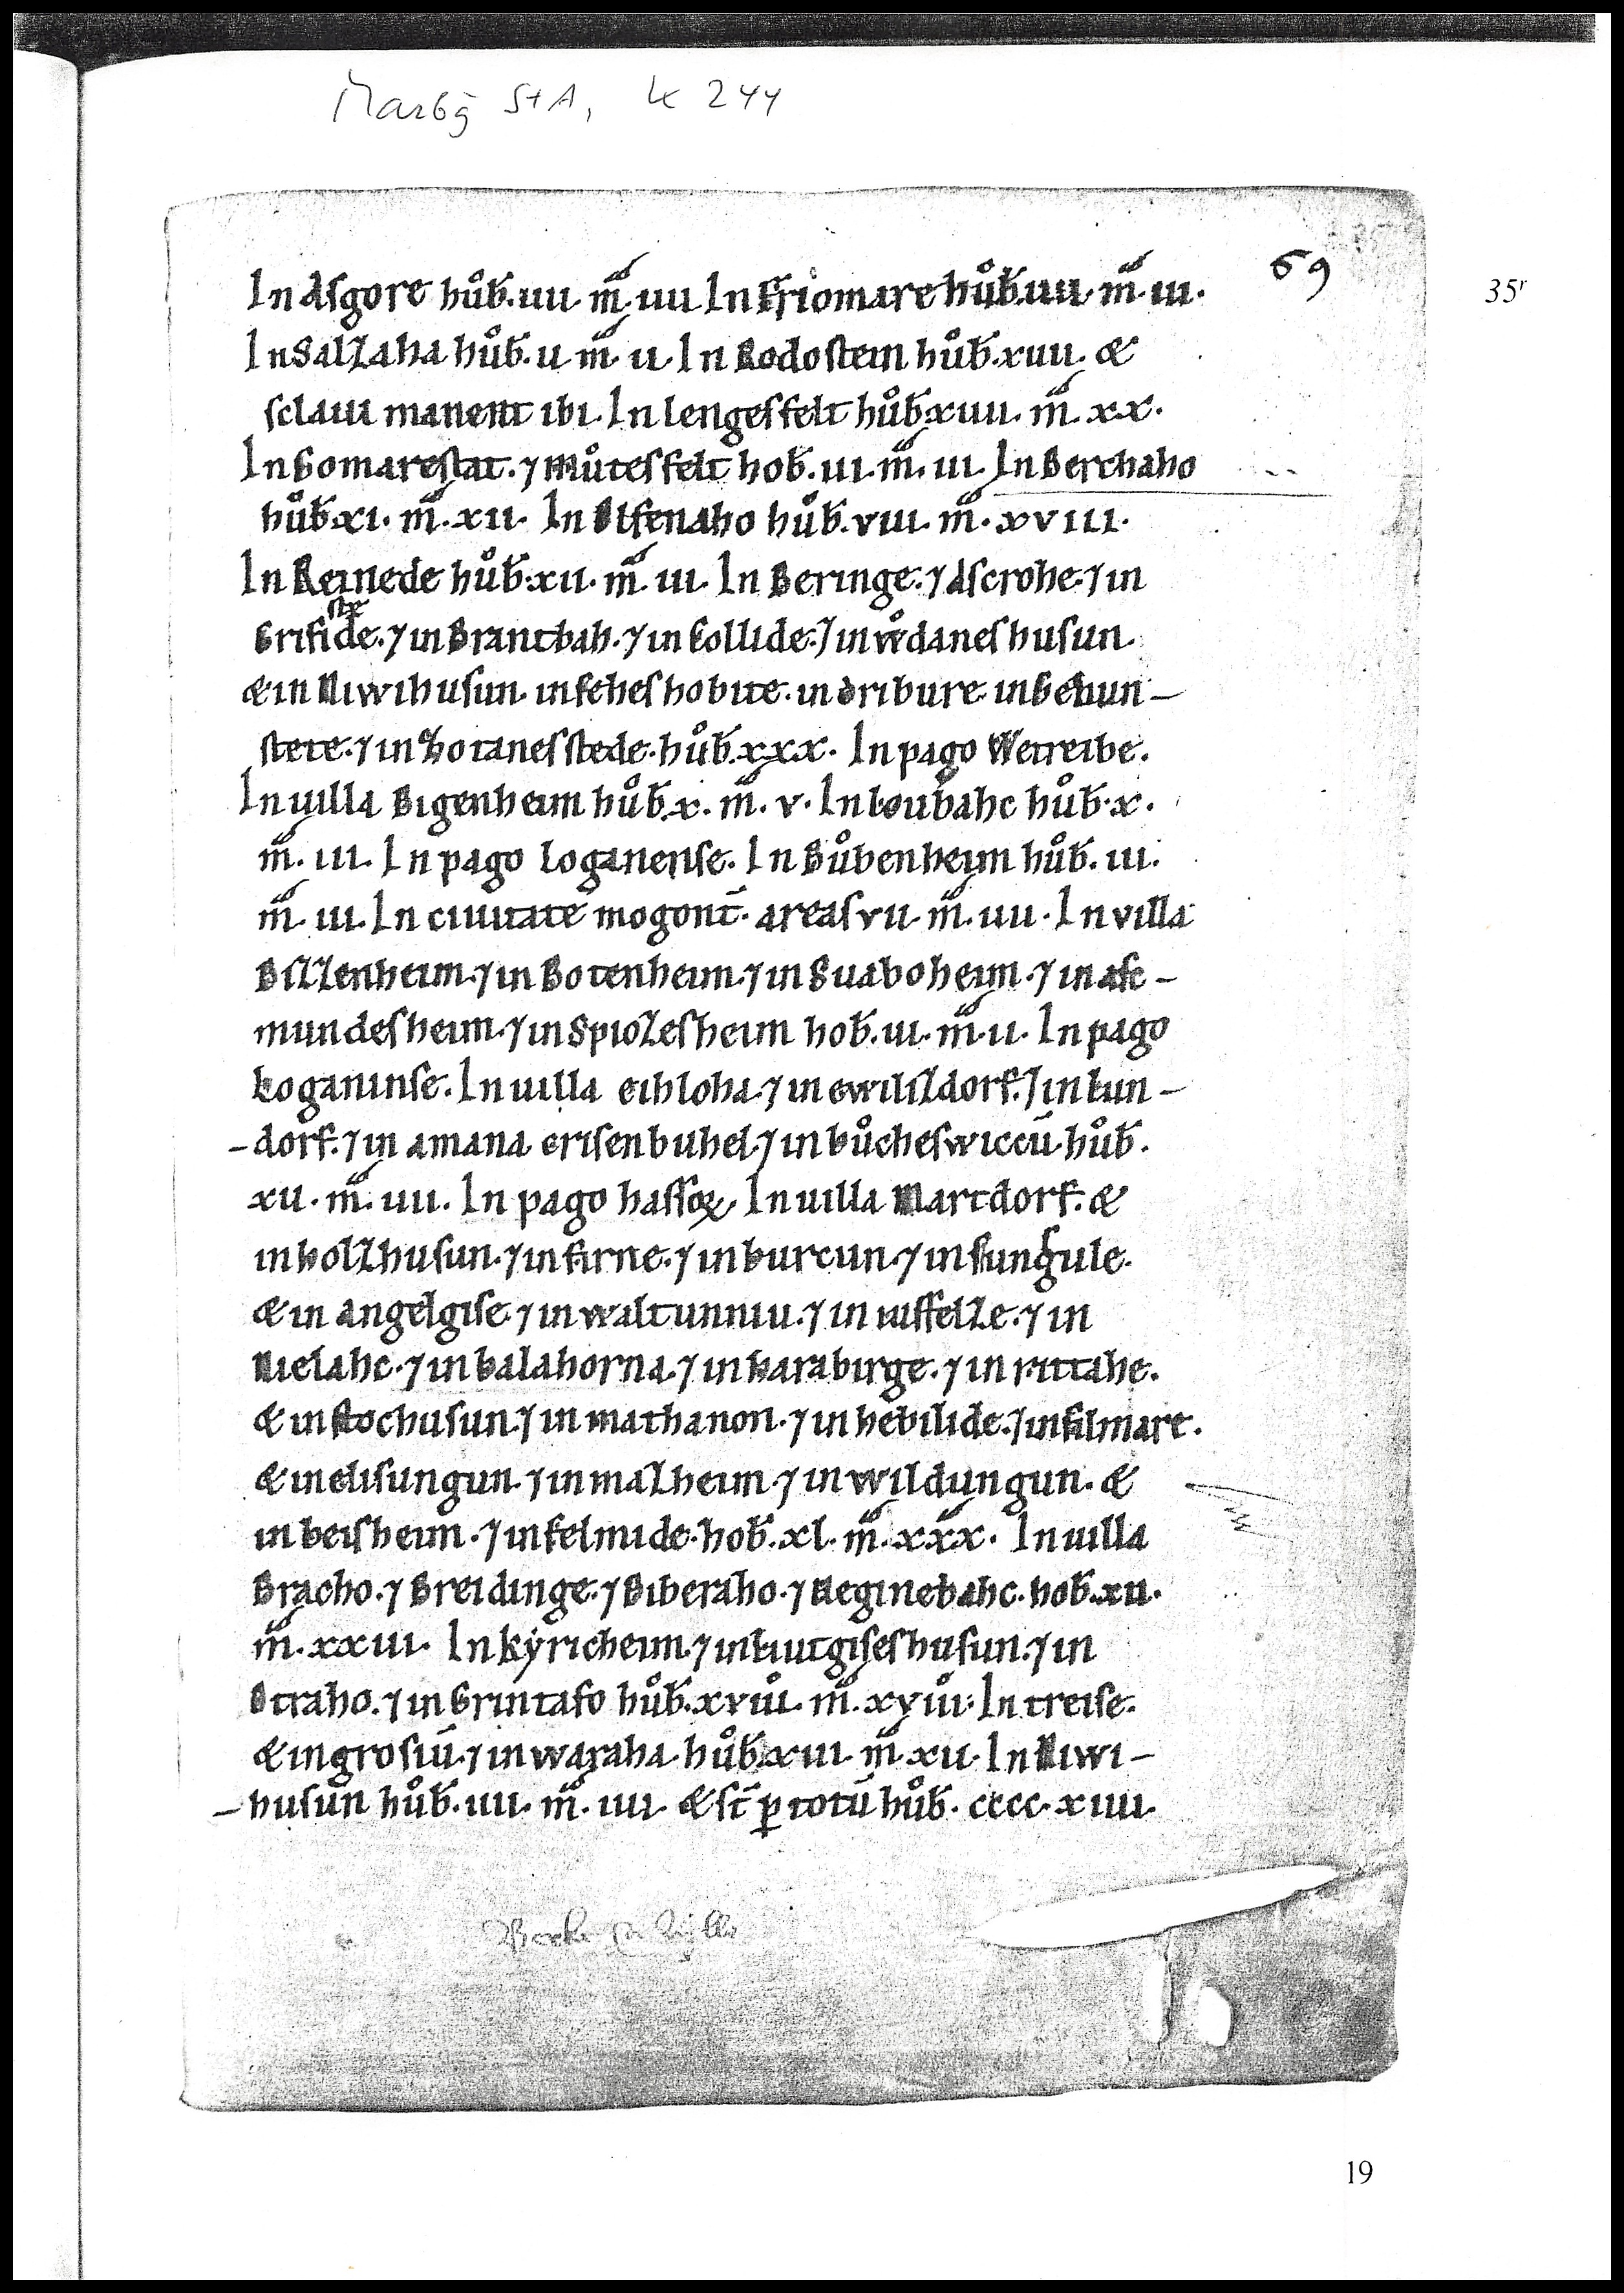 Marbg StA, K 244
69
35r
In Asgore hůb̄. uii. m̄. uii. In Friomare hůb̄. uii. m̄. iii.
In Salzaha hůb̄. u. m̄. u. In Rodostein hůb̄. xuii. &
sclaui manent ibi. In lengesfelt hůb̄. xuii. m̄. xx.
In Gomarestat. ⁊ Můtesfelt hob̄. iii. m̄. iii. In Berchaho
hůb̄. xi. m̄. xii. In Elfenaho hůb̄. viii. m̄. xviii.
In Reinede hůb̄. xii. m̄. iii. In Beringe. ⁊ Ascrohe. ⁊ in
ste
Grifide. ⁊ in Brantbah. ⁊ in Collide. ⁊ in wůdaneshusun.
& in Niwihusun. in feheshobite. in dribure. in Gebun-
stete. ⁊ in Hotanesstede. hůb̄. xxx. In pago Wetreibe.
In uilla Bigenheim hůb̄. x. m̄. v. In loubahc hůb̄. x.
m̄. iii. In pago Loganense. In Bůbenheim hůb̄. iii.
m̄. iii. In ciuitate mogont̄. areas vii. m̄. uii. In villa
Bizzenheim. ⁊ in Botenheim. ⁊ in Suaboheim. ⁊ in asc-
mundesheim. ⁊ in Spiozesheim hob̄. iii. m̄. ii. In pago
Loganinse. In uilla eihloha. ⁊ in ewilizdorf. ⁊ in lun-
-dorf. ⁊ in amana erisenbuhel. ⁊ in bůcheswiccū. hůb̄.
xii. m̄. uii. In pago hassoꝝ. In uilla Martdorf. &
in holzhusun. ⁊ in firne. ⁊ in burcun. ⁊ in sungule.
& in angelgise. ⁊ in waltunniu. ⁊ in ruffelze. ⁊ in
Nielahc. ⁊ in balahorna. ⁊ in harabirge. ⁊ in rittahe.
& in stochusun. ⁊ in mathanon. ⁊ in hebilide. ⁊ in filmare.
& in elisungun. ⁊ in malheim. ⁊ in wildungun. &
in beisheim. ⁊ in felmide. hob̄. xl. m̄. xxx. In uilla
Bracho. ⁊ Breidinge. ⁊ Biberaho. ⁊ Meginebahc. hob̄. xii.
m̄. xxiii. In kyricheim. ⁊ in liutgiseshusun. ⁊ in
Otraho. ⁊ in Grintafo hůb̄. xviii. m̄. xviii. In treise.
& in grosiū. ⁊ in waraha. hůb̄. xiii. m̄. xii. In Niwi-
-husun hůb̄. uii. m̄. iiii. & st̄ ꝑ totū hůb̄. cccc. xiiii.
19